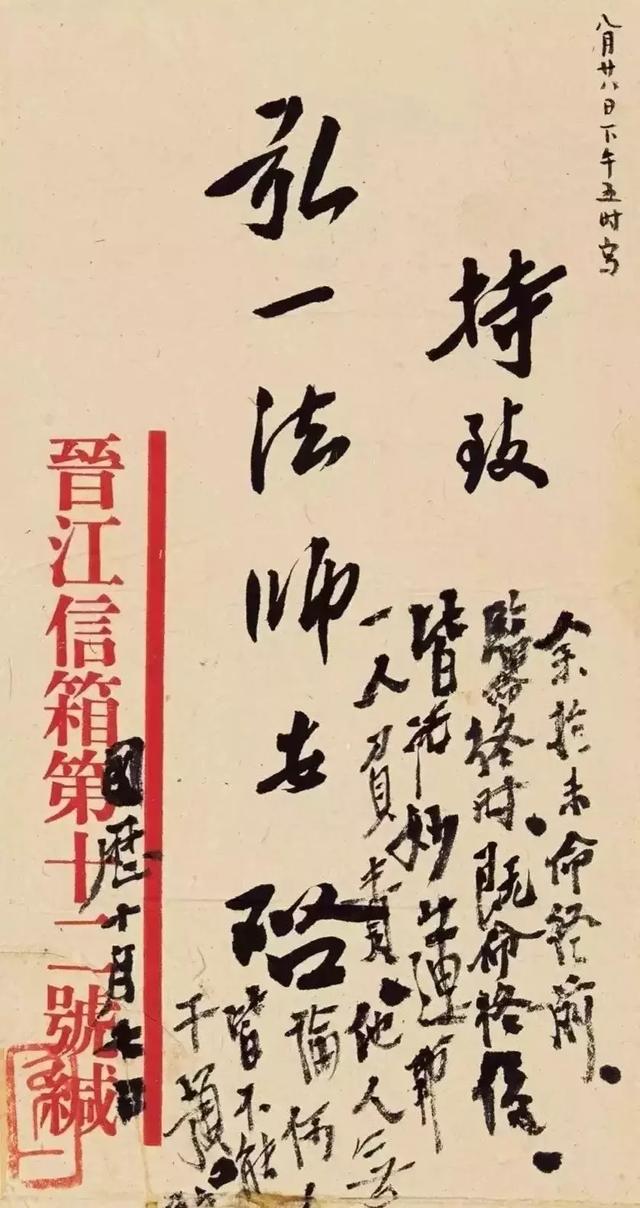 八月廿八日下午五时写
持致
弘一法师安啓
余於未命終前、
臨命終时、既命終後、
皆託妙蓮師
一人負責、他人无
論何人
皆不能
干預。
國歷十月七日
晉江信箱第十二號緘
弘一